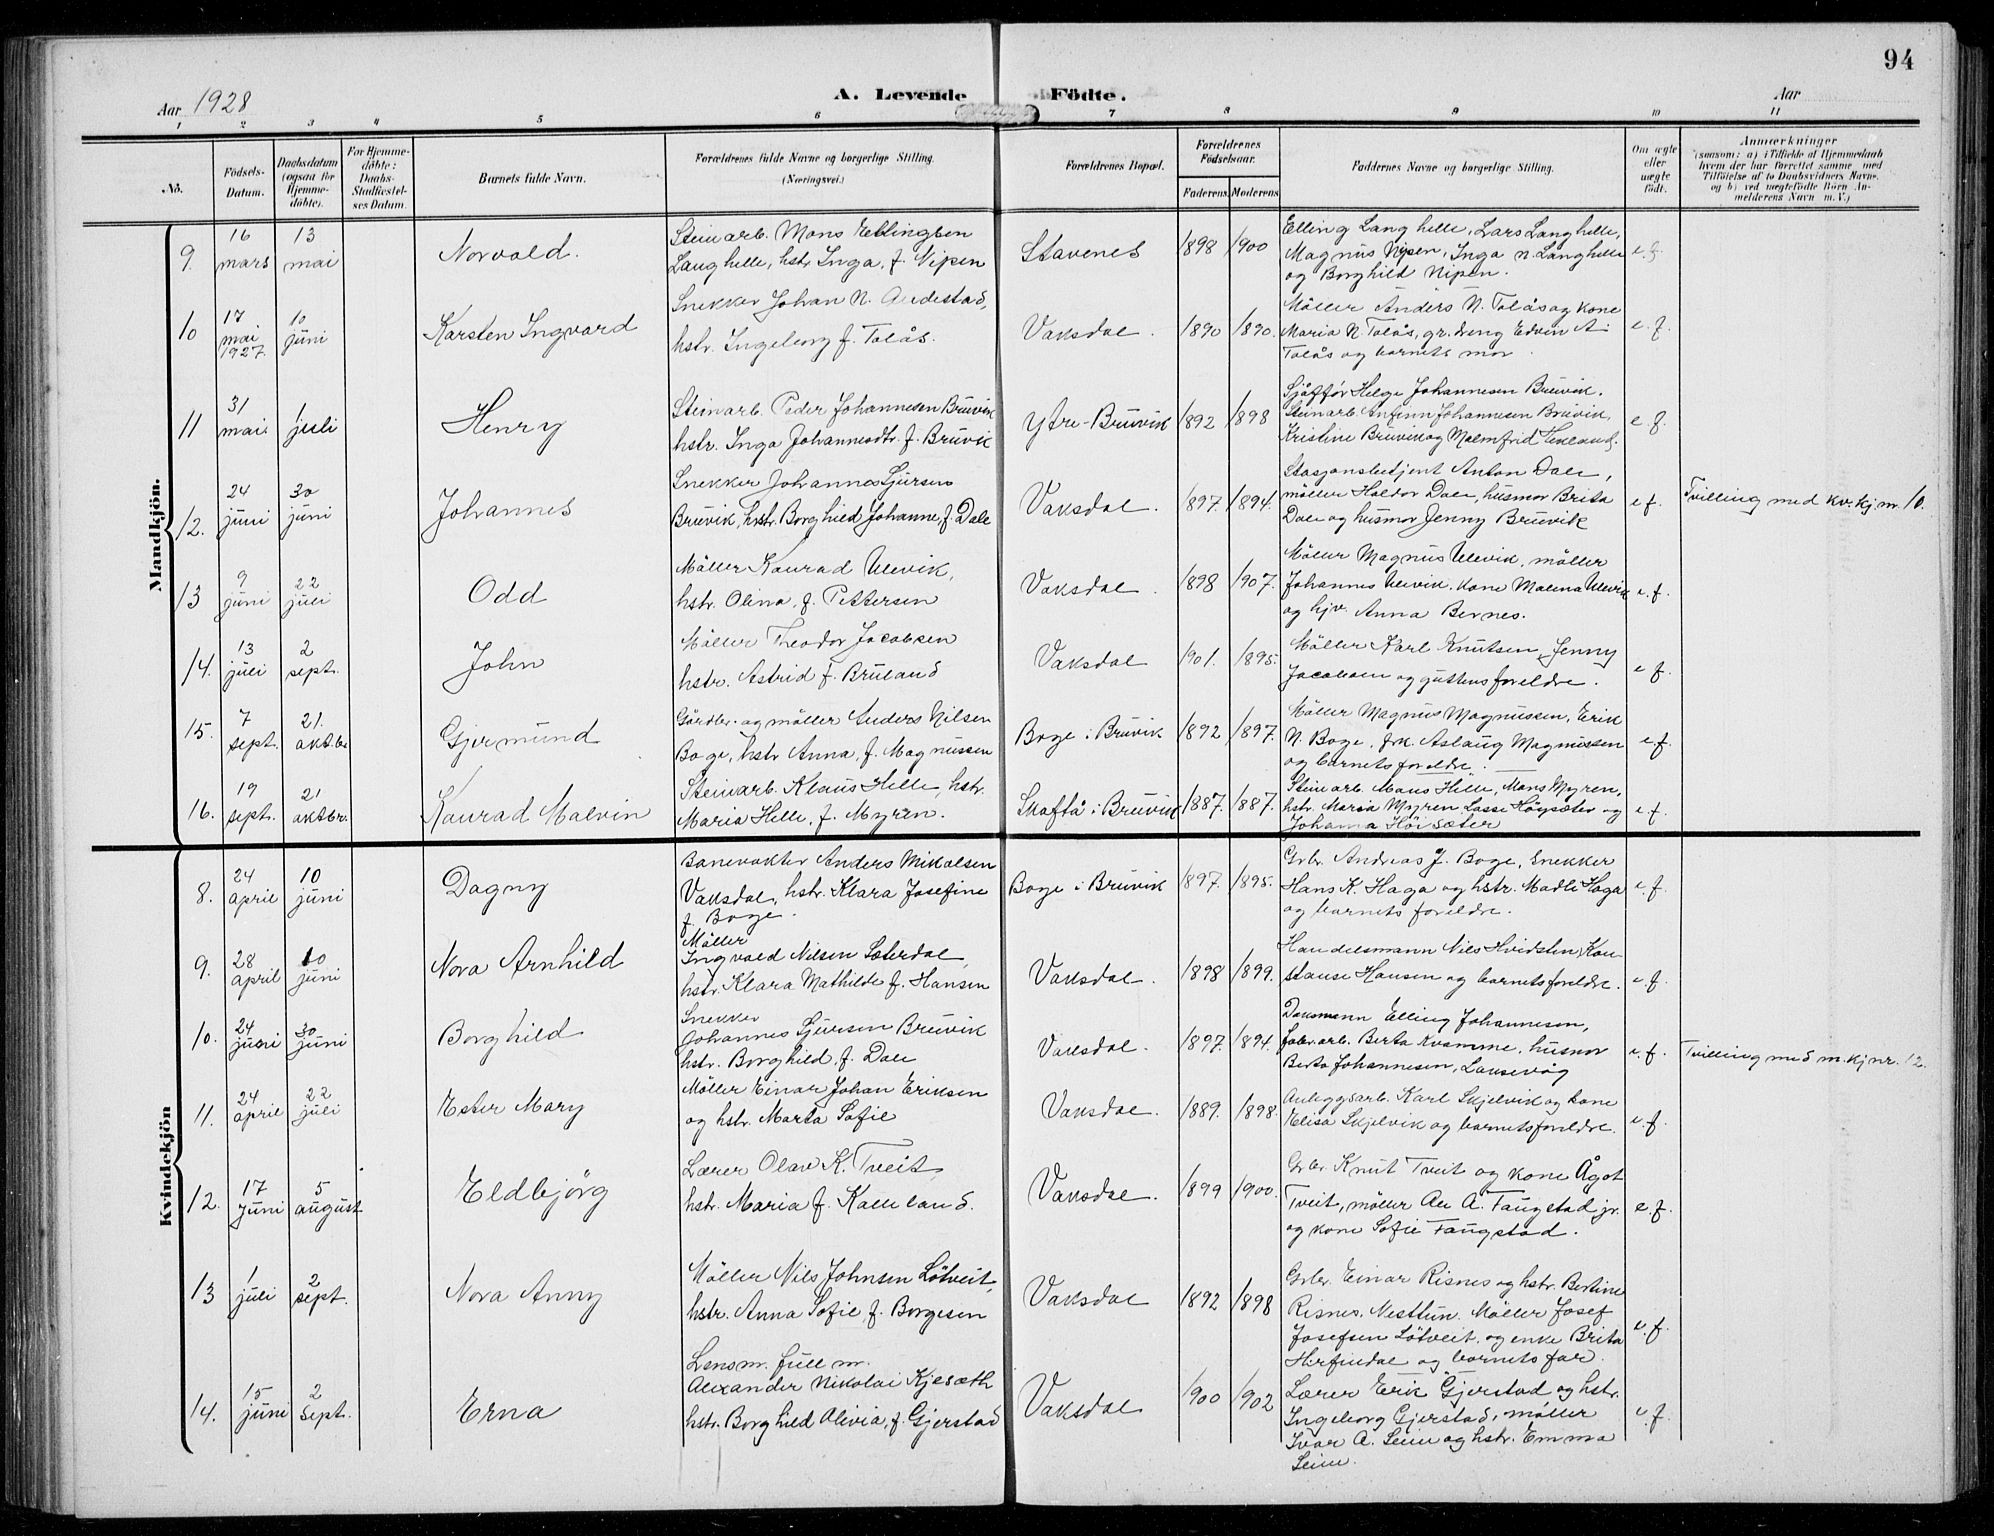 94
Aar 1928
A. Levende Födte.
Aar
1 2 3 4 5 6 7 8 9 10 11
No.
Födsels-Datum.
Daabsdatum (ogsaa for Hjemme-döbte).
For Hjemme-döbte: Daabs-Stadfæstel-ses Datum.
Barnets fulde Navn.
Forældrenes fulde Navne og borgerlige Stilling. (Næringsvei.)
Forældrenes Bopæl.
Forældrenes Födselsaar.
Faderens. Moderens.
Faddernes Navne og borgerlige Stilling.
Om ægte eller uægte födt.
Anmærkninger
(saasom: a) i Tilfælde af Hjemmedaab
hvem der har forrettet samme med
Tilföielse af to Daabsvidners Navne.
og b) ved uægtefödte Börn An-
melderens Navn m. V.)
Mandkjön.
9. 16 mars 13 mai Norvald.
Steinarb. Mons Ellingsen
Langhelle, hstr. Inga, f. Nipen
Stavenes 1898 1900
Elling Langhelle, Lars Langhelle,
Magnus Nipen, Inga N. Langhelle
og Borghild Nipen.
e.f.
10 17 mai 1927. 10 juni Karsten Ingvard
Snekker Johan N. Audestad,
hstr. Ingeborg f. Tolås.
Vaksdal. 1890 1890.
Möller Anders N. Tolås og kone
Maria N. Tolås, gr.dreng Edvin A.
Tolås og barnets mor.
e.f.
11 31 mai 1 juli Henry
Steinarb. Peder Johannesen Bruvik
hstr. Inga Johannesdtr. f. Bruvik
Ytre-Bruvik 1892 1898
Sjåffør Helge Johannesen Bruvik.
Steinarb. Anfinn Johannesen Bruvik,
Kristine Bruvik og Malmfrid
e.f.
12. 24 juni 30 juni Johannes
Snekker Johannes Sjursen
Bruvik, hstr. Borghild Johanne, f. Dale
Vaksdal. 1897. 1894.
Stasjonsbetjent Anton Dale,
möller Haldor Dale, husmor Brita
Dale og husmor Jenny Bruvik
e.f.
Tvilling med kv.kj.nr. 10.
13 9 juni 22 juli Odd
Möller Konrad Ulevik,
hstr. Olina, f. Pettersen
Vaksdal. 1898 1907.
Möller Magnus Ulevik, möller
Johannes Ulevik, kone Malena Ulevik
og hjv. Anna Bernes.
e.f.
14. 13 juli 2 sept. John
Möller Theodor Jacobsen
hstr. Astrid f. Bruland
Vaksdal 1901. 1895.
Möller Karl Knutsen, Jenny
Jacobsen og guttens foreldre.
e.f.
15. 7 sept. 21. oktbr Gjermund
Gårdbr. og möller Anders Nilsen
Boge, hstr Anna, f. Magnussen
Boge i Bruvik 1892 1897.
Möller Magnus Magnussen, Erik
N. Boge, frk. Aslaug Magnussen
og barnets foreldre.
e.f.
16. 19 sept. 21 oktbr. Konrad Malvin
Steinarb. Klaus Helle, hstr.
Maria Helle, f. Myren.
Skaftå i Bruvik 1887. 1887.
Steinarb. Mons Helle, Mons Myren,
hstr. Maria Myren Lasse Höysæter og
Johanna Höisæter
e.f.
Kvindekjön
8. 24 april 10 juni Dagny
Banevakter Anders Mikalsen
Vaksdal, hstr. Klara Josefine
f. Boge.
Boge i Bruvik 1897. 1895.
Grbr. Andreas J. Boge, snekker
Hans K. Haga og hstr. Madli Haga
og barnets foreldre.
e.f.
9. 28 april 10 juni Nora Arnhild
Möller
Ingvald Nilsen Sæterdal,
hstr. Klara Mathilde f. Hansen
Vaksdal. 1898 1899.
Handelsmann Nils Hvidsten, Kon
stanse Hansen og barnets foreldre.
e.f.
10. 24 juni 30 juni Borghild
Snekker
Johannes Sjursen Bruvik
hstr. Borghild, f. Dale
Vaksdal. 1897. 1894.
Elling Johannesen,
fabr.arb. Berta Kvamme, husmor
Berta Johannesen, Laksevåg
e.f.
Tvilling med m.kj nr. 12.
11. 24 april 22 juli Ester Mary
Möller Einar Johan Eriksen
og hstr. Marta Sofie
Vaksdal. 1889. 1898.
Anleggsarb. Karl Skjelvik og kone
Elisa Skjelvik og barnets foreldre.
e.f.
12. 17 juni 5 august Eldbjörg
Lærer Olav K. Tveit,
hstr. Maria f. Kalleland.
Vaksdal. 1899 1900.
Grbr. Knut Tveit og kone Ågot
Tveit, möller A. Faugstad jr.
og kone Sofie Faugstad.
e.f.
13 1 juli 2 sept. Nora Anny
Möller Nils Johnsen Lötveit,
hstr. Anna Sofie, f. Borgesen
Vaksdal 1892 1898
Grbr. Einar Risnes og hstr. Bertine
Risnes. Nesttun. Möller Josef
Josefsen Lötveit. og enke Brita
Herfindal og barnets far.
e.f.
14. 15 juni 2 sept. Erna
Lensm. fullm.
Alexander Nikolai Kjesæth
hstr. Borghild Alivia, f. Gjerstad
Vaksdal 1900 1902
Lærer Erik Gjerstad og hstr.
Ingeborg Gjerstad, möller
Ivar A. Seim og hstr. Emma
Seim.
e.f.